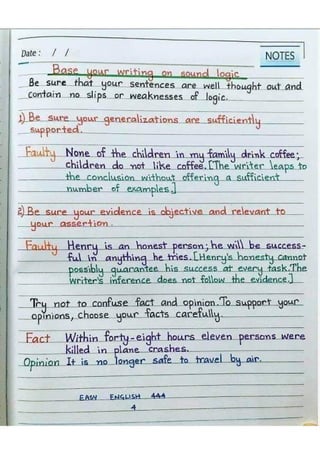 Date : / /
NOTES
Base your writing on sound logic
Be sure that your sentences are well thought out and
contain no slips or weaknesses of logic.
1) Be sure your generalizations are sufficiently
supported.
Faulty None of the children in my family drink coffee;
children do not like coffee. [The writer leaps to
the conclusion without offering a sufficient
number of examples.]
2) Be sure your evidence is objective and relevant to
your assertion.
Faulty Henry is an honest person; he will be success-
ful in anything he tries. [Henry's honesty cannot
possibly guarantee his success at every task. The
writer's inference does not follow the evidence.]
Try not to confuse fact and opinion. To support your
opinions, choose your facts carefully.
Fact Within forty-eight hours eleven persons were
killed in plane crashes.
Opinion It is no longer safe to travel by air.
EASY ENGLISH 444
4